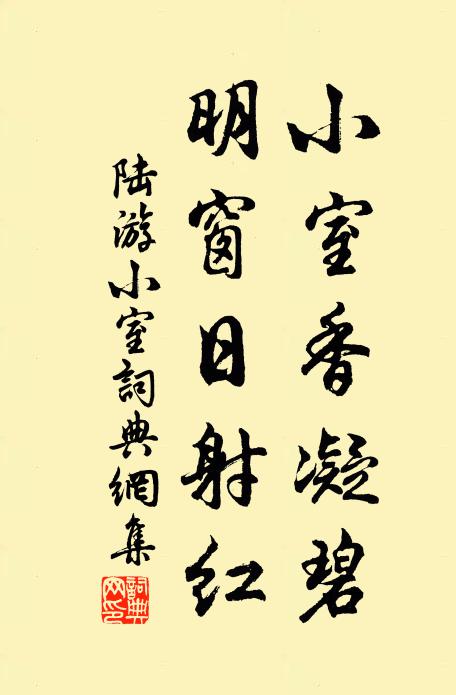 小室香凝碧
明窗日射红
陆游小室詞典網集
詞典网印